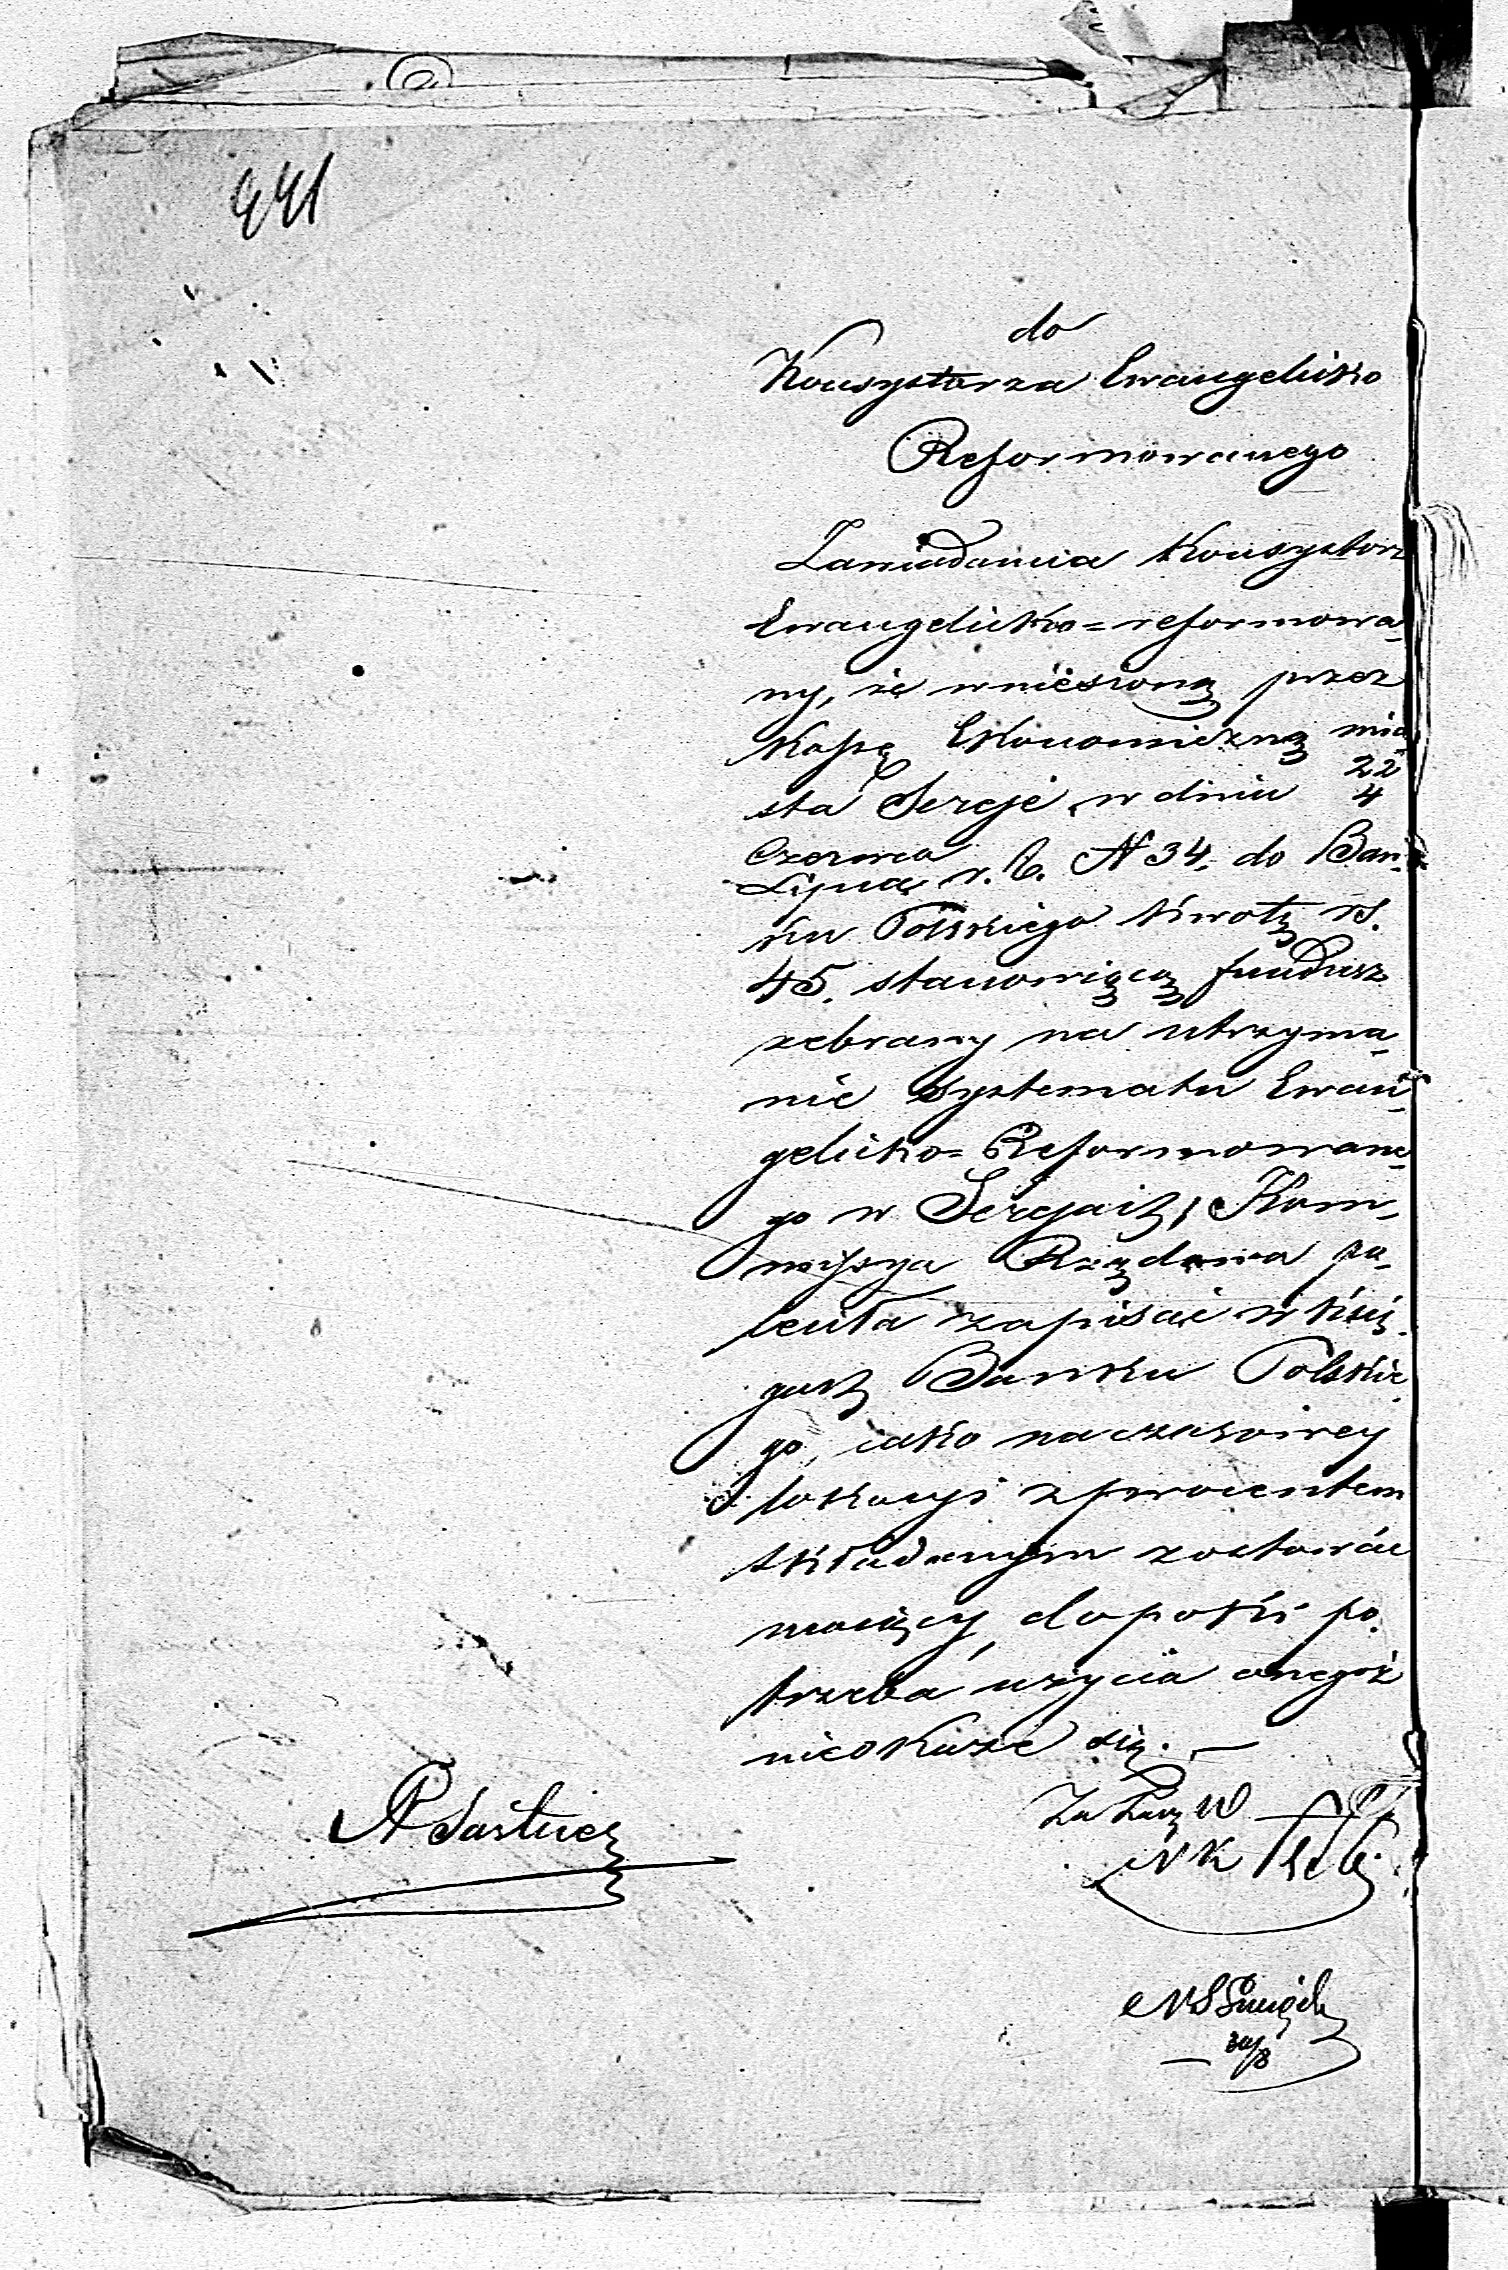 441
do
Konsystorza Ewangelicko
Reformowanego
Zawiadamia Konsystorz
Ewangelicko=reformowa-
ny, że wniesioną przez
Kassę Ekonomiczną mia-
sta Sereje w dniu 22/4
Czerwca/Lipca r. b. N 34, do Ban-
ku Polskiego kwotę rs.
45. stanowiącą fundusz
zebrany na utrzyma-
nie systematu Ewan-
gelicko=Reformowane-
go w Serejach, Kom-
missya Rządowa po-
leciła zapisać w księ-
gach Banku Polskie-
go, iako na czasowey
lokacyi z procentem
składanym zostawać
maiący, dopokiż po-
trzeba użycia onegoż
nieokaże się. —
30/8